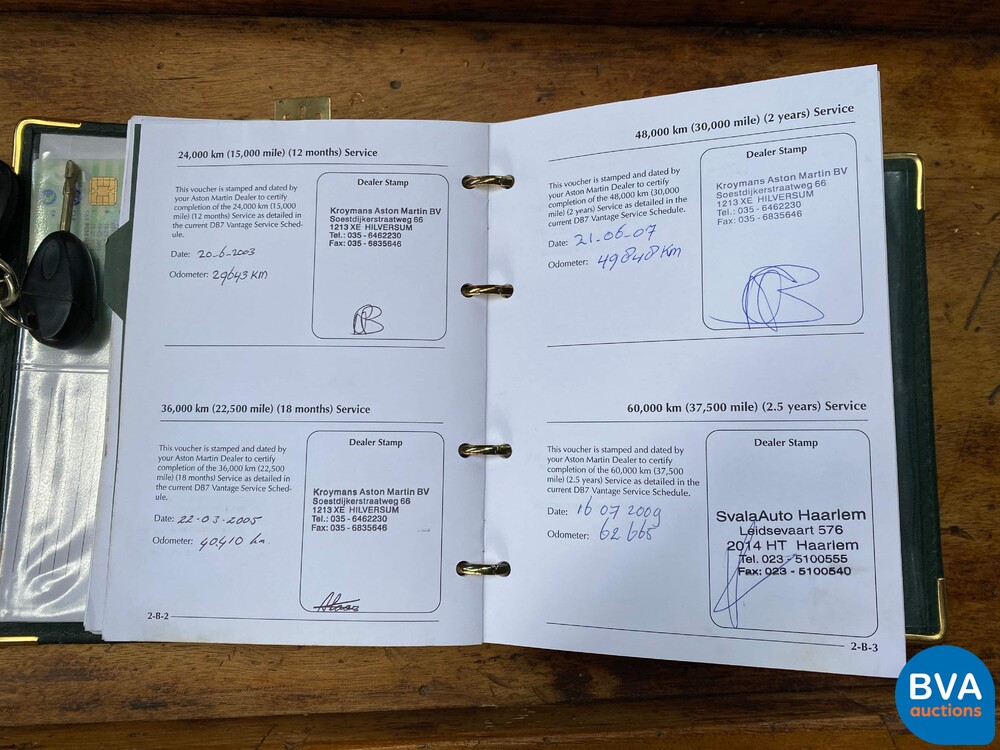 24,000 km (15,000 mile) (12 months) Service
This voucher is stamped and dated by
your Aston Martin Dealer to certify
completion of the 24,000 km (15,000
mile) (12 months) Service as detailed in
the current DB7 Vantage Service Sched-
ule.
Date: 20-6-2003
Odometer: 29643 KM
Dealer Stamp
Kroymans Aston Martin BV
Soestdijkerstraatweg 66
1213 XE HILVERSUM
Tel.: 035 - 6462230
Fax: 035 - 6835646
36,000 km (22,500 mile) (18 months) Service
This voucher is stamped and dated by
your Aston Martin Dealer to certify
completion of the 36,000 km (22,500
mile) (18 months) Service as detailed in
the current DB7 Vantage Service Sched-
ule.
Date: 22-03-2005
Odometer: 40.410 km.
Dealer Stamp
Kroymans Aston Martin BV
Soestdijkerstraatweg 66
1213 XE HILVERSUM
Tel.: 035 - 6462230
Fax: 035 - 6835646
2-B-2
48,000 km (30,000 mile) (2 years) Service
This voucher is stamped and dated by
your Aston Martin Dealer to certify
completion of the 48,000 km (30,000
mile) (2 years) Service as detailed in the
current DB7 Vantage Service Schedule.
Date: 21-06-07
Odometer: 49848 Km
Dealer Stamp
Kroymans Aston Martin BV
Soestdijkerstraatweg 66
1213 XE HILVERSUM
Tel.: 035 - 6462230
Fax: 035 - 6835646
60,000 km (37,500 mile) (2.5 years) Service
This voucher is stamped and dated by
your Aston Martin Dealer to certify
completion of the 60,000 km (37,500
mile) (2.5 years) Service as detailed in the
current DB7 Vantage Service Schedule.
Date: 16 07 2009
Odometer: 62 665
Dealer Stamp
SvalaAuto Haarlem
Leidsevaart 576
2014 HT Haarlem
Tel. 023 - 5100555
Fax: 023 - 5100540
2-B-3
BVA
auctions